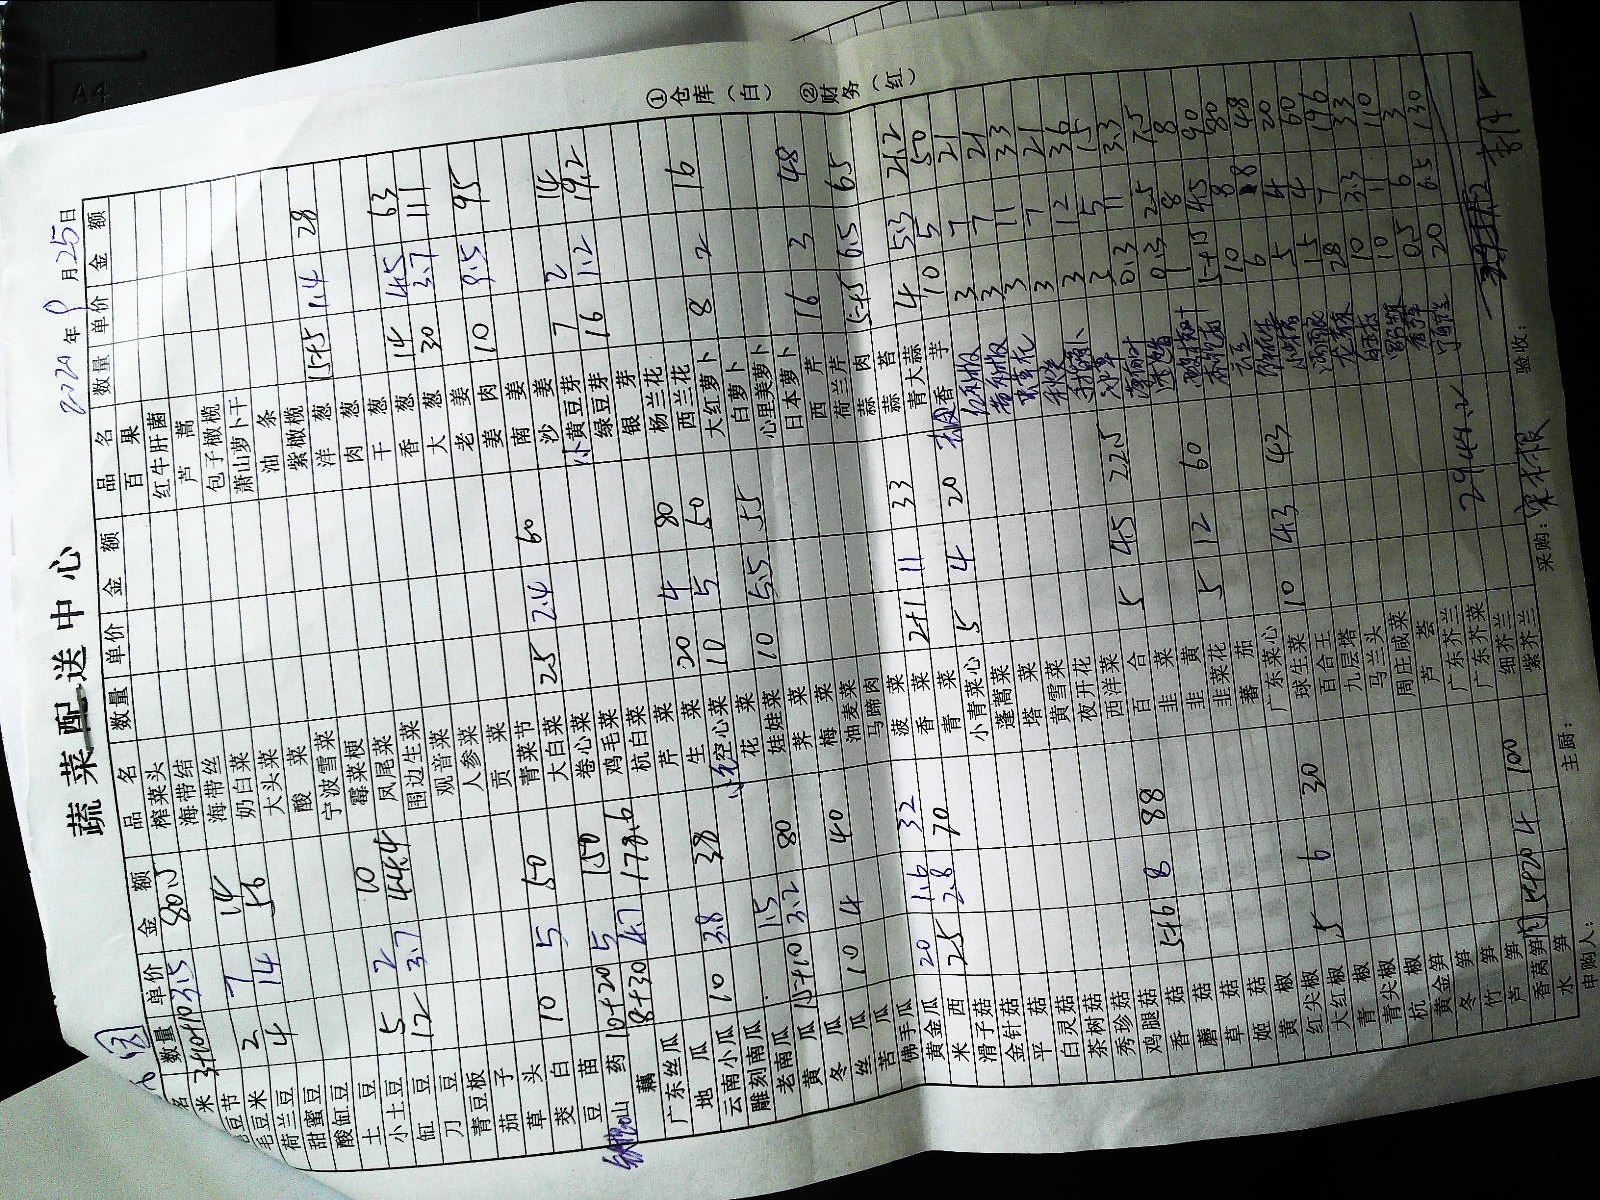 蔬菜配送中心
2024年9月25日
品名 数量 单价 金额 品名 数量 单价 金额 品名 数量 单价 金额
米 3+10+10 3.5 80.5 榨菜头 百果
毛豆节 海带结 红牛肝菌
毛豆米 2 7 14 海带丝 芦蒿
荷兰豆 4 14 56 奶白菜 包子橄榄
甜蜜豆 大头菜 萧山萝卜干
酸缸豆 酸菜 油条
土豆 宁波雪菜 紫橄榄
小土豆 5 2 10 霉菜梗 洋葱 15+5 1.4 28
缸豆 12 3.7 44.4 凤尾菜 肉葱
刀豆 围边生菜 干葱 14 4.5 63
青豆板 观音菜 香葱 30 3.7 111
茄子 人参菜 大葱
草头 10 5 50 贡菜 老姜 10 9.5 95
茭白 青菜节 姜肉
豆苗 10+20 5 150 大白菜 25 2.4 60 南姜
铁棍山药 8+30 4.7 178.6 卷心菜 沙姜
藕 鸡毛菜 小黄豆芽 7 2 14
广东丝瓜 杭白菜 绿豆芽 16 1.2 19.2
地瓜 10 3.8 38 芹菜 20 4 80 银芽
云南小瓜 生菜 10 5 50 杨兰花
雕刻南瓜 空心菜 西兰花 8 2 16
老南瓜 1.5 花菜 10 5.5 55 大红萝卜
黄瓜 15+10 3.2 80 娃娃菜 白萝卜
冬瓜 荠菜 心里美萝卜
丝瓜 10 4 40 梅菜 日本萝卜 16 3 48
苦瓜 油麦菜 西芹
佛手瓜 马蹄肉 荷兰芹 5+5 6.5 65
黄金瓜 20 1.6 32 菠菜 2+1 11 33 蒜肉
米西 25 2.8 70 香菜 蒜苔 4 5.3 21.2
滑子菇 青菜 5 4 20 青大蒜 10 5 50
金针菇 小青菜心 香芋 3 7 21
平菇 蓬蒿菜 3 7 21
白灵菇 塔菜 3 11 33
茶树菇 黄雪菜 3 7 21
秀珍菇 夜开花 3 12 36
鸡腿菇 5+6 8 88 西洋菜 5 45 225 3 5 15
香菇 百合 0.3 11 3.3
蘑菇 韭菜 2.5
草菇 韭黄 5 12 60 1 8 8
姬菇 韭菜花 4.5 90
黄椒 5 6 30 蕃茄 10 8 80
红尖椒 广东菜心 10 4.3 43 6 8 48
大红椒 球生菜 5 4 20
青椒 百合王 15 4 60
青尖椒 九层塔 28 7 196
杭椒 马兰头 10 3.3 33
黄金笋 周庄咸菜 10 11 110
冬笋 芦荟 0.5 6 3
竹笋 广东芥兰 20 6.5 130
芦笋 5+20 4 100 广东芥菜
香莴笋 细芥兰 2944.2
水笋 紫芥兰
申购人： 主厨： 采购： 验收：
①仓库（白） ②财务（红）